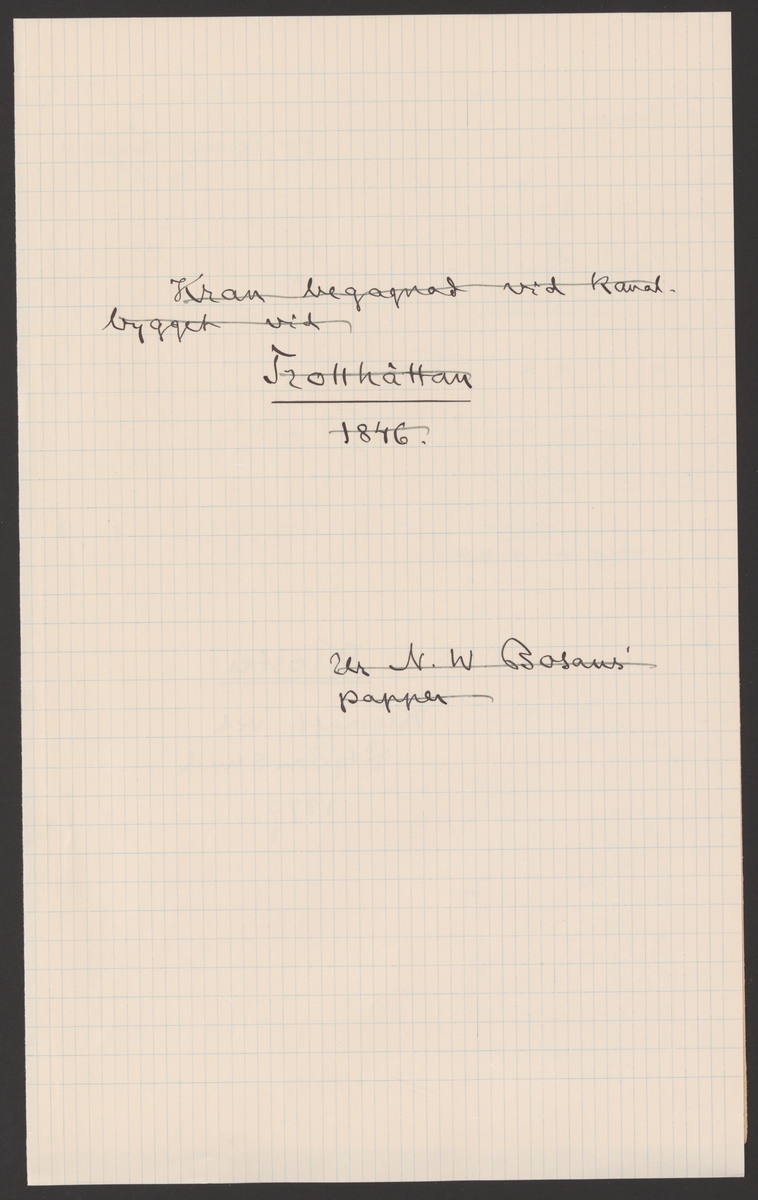 Kran begagnad vid kanal-
bygget vid
Trollhättan
1846.
Ur N. W. Bosaus'
papper